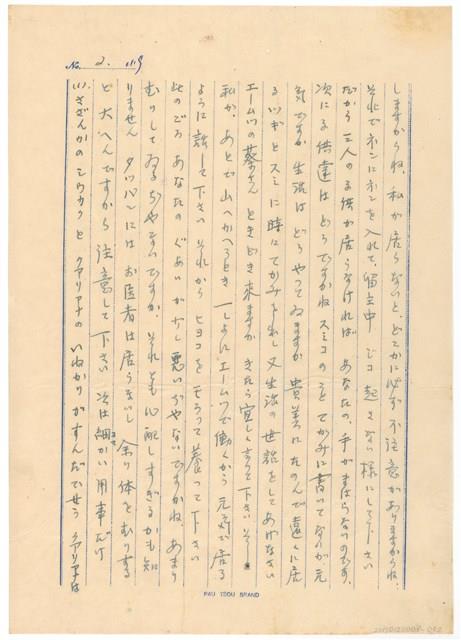 No. 2. 11.9
しますからね、私が居らないと、どこかに必ず不注意がありますからね、
それでネンにネンを入れて、留主中 ジコ起きない様にして下さい
だから三人の子供が居らなければ あなたの、手がまはらないのです、
次に子供達は どうですかね スミコのこと てがみに書いてないが、元
気ですか 生活はどうやってゐますか 貴美にたのんで遠くに居
るツギとスミに時にてがみを出し 又生活の世話をしてあげなさい
エームツの蔡さん ときどき来ますか きたら宜しく言って下さい そし
私が、あとで山へかへるとき 一しょに エームツで働くから 元気で居る
ように話して下さい それから ヒヨコを もらって養って下さい
此のごろ あなたの ぐあいが少し悪いぢやないですかね、あまり
むりしてゐるぢやないですか、それとも心配しすぎるかも知
りません タッパンには お医者は居らないし 余り体をむりする
と大へんですから 注意して下さい 次は細かい用事だけ
(1). さざんかのシウカクと クアリアナの いねかりがすんだでせう クアリアナは
PAU TSOU BRAND